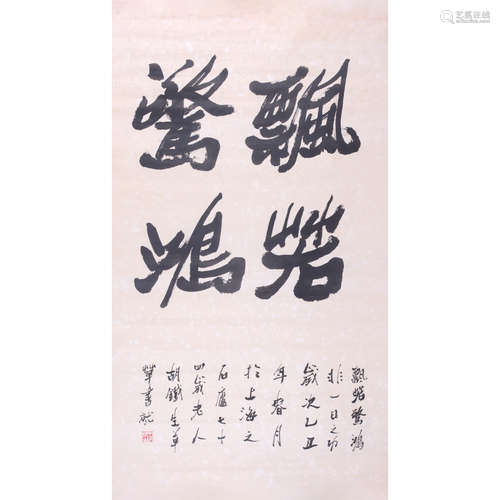 飄若
驚鴻
飄若驚鴻
非一日之功
歲次乙丑
年春月
於上海之
石廬七十
四歲老人
胡鐵生草
書
艺狐在线